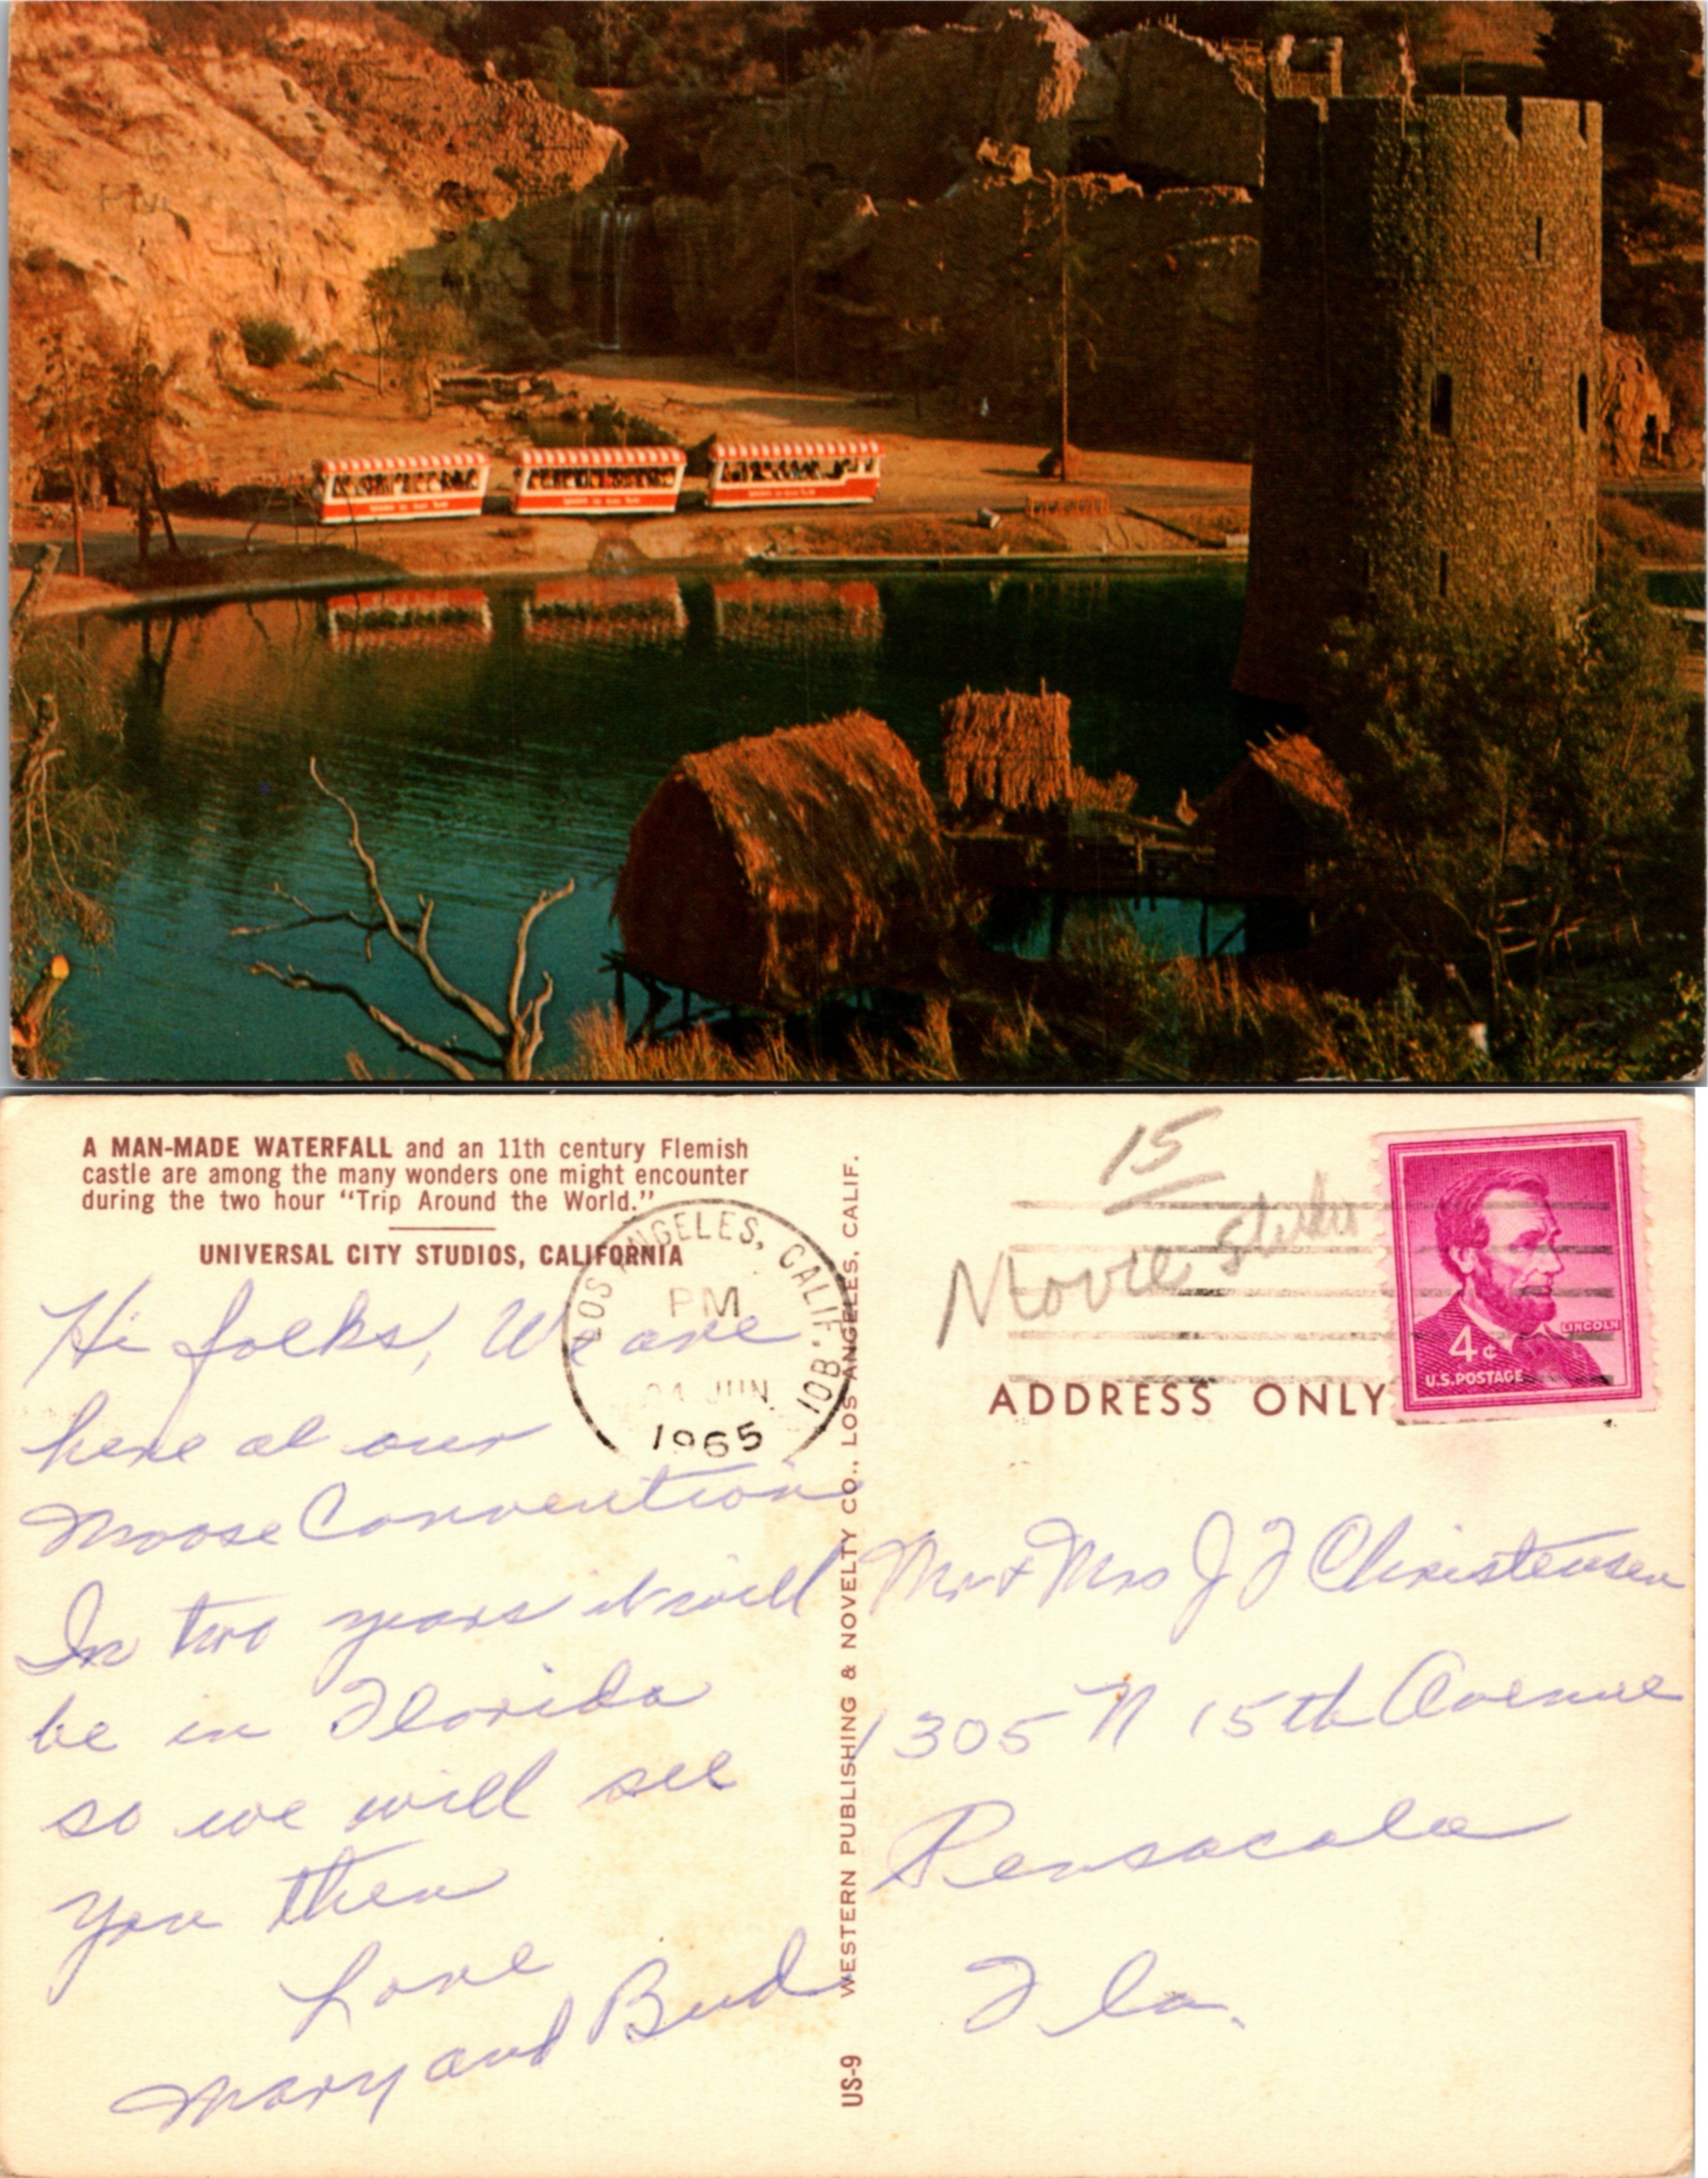 A MAN-MADE WATERFALL and an 11th century Flemish
castle are among the many wonders one might encounter
during the two hour “Trip Around the World.”
UNIVERSAL CITY STUDIOS, CALIFORNIA
LOS ANGELES, CALIF. 901
PM
JUN
1965
Hi folks, We are
here at our
Moose Convention
In two years it will
be in Florida
so we will see
you then
Love
Mary and Bud
US-9 WESTERN PUBLISHING & NOVELTY CO., LOS ANGELES, CALIF.
15
Movie
LINCOLN
4¢
U.S. POSTAGE
ADDRESS ONLY
Mr + Mrs J F Christensen
1305 N 15th Avenue
Pensacola
Fla.